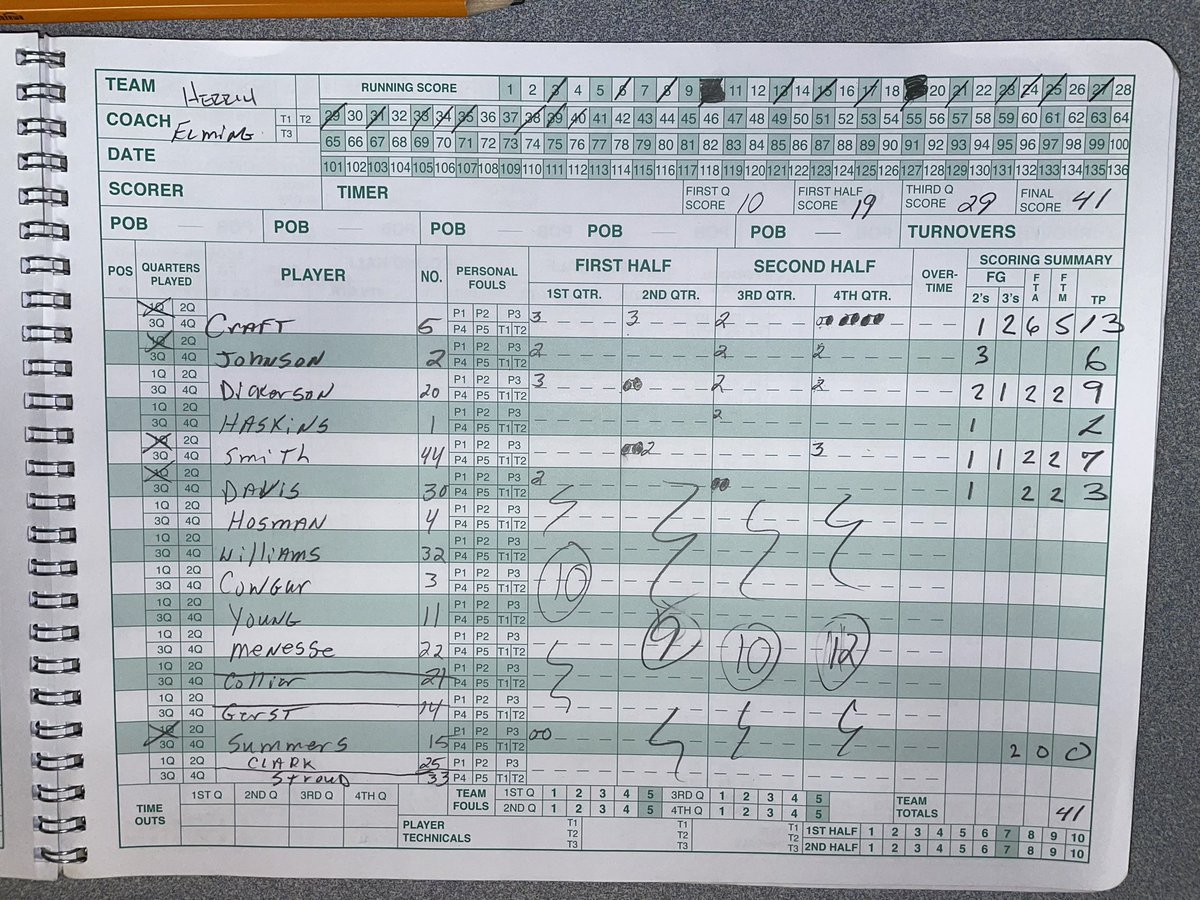 TEAM Herrin RUNNING SCORE 1 2 3 4 5 6 7 8 9 11 12 13 14 15 16 17 18 20 21 22 23 24 25 26 27 28
COACH T1 T2 29 30 31 32 33 34 35 36 37 38 39 40 41 42 43 44 45 46 47 48 49 50 51 52 53 54 55 56 57 58 59 60 61 62 63 64
T3
65 66 67 68 69 70 71 72 73 74 75 76 77 78 79 80 81 82 83 84 85 86 87 88 89 90 91 92 93 94 95 96 97 98 99 100
DATE
101 102 103 104 105 106 107 108 109 110 111 112 113 114 115 116 117 118 119 120 121 122 123 124 125 126 127 128 129 130 131 132 133 134 135 136
SCORER TIMER FIRST Q SCORE 10 FIRST HALF SCORE 19 THIRD Q SCORE 29 FINAL SCORE 41
POB POB POB POB POB TURNOVERS
POS QUARTERS PLAYED PLAYER NO. PERSONAL FOULS FIRST HALF SECOND HALF OVER-TIME SCORING SUMMARY
1ST QTR. 2ND QTR. 3RD QTR. 4TH QTR. FG 2's 3's FTA FTM TP
1Q 2Q P1 P2 P3
3Q 4Q CRAFT 5 P4 P5 T1 T2 3 3 2 00 00 00 1 2 6 5 13
1Q 2Q P1 P2 P3
3Q 4Q JOHNSON 2 P4 P5 T1 T2 2 2 2 3 6
1Q 2Q P1 P2 P3
3Q 4Q Dickerson 20 P4 P5 T1 T2 3 00 2 2 2 1 2 2 9
1Q 2Q P1 P2 P3
3Q 4Q HASKINS 1 P4 P5 T1 T2 2 1 2
1Q 2Q P1 P2 P3
3Q 4Q Smith 44 P4 P5 T1 T2 00 2 3 1 1 2 2 7
1Q 2Q P1 P2 P3
3Q 4Q DAVIS 30 P4 P5 T1 T2 2 00 1 2 2 3
1Q 2Q P1 P2 P3
3Q 4Q HOSMAN 4 P4 P5 T1 T2
1Q 2Q P1 P2 P3
3Q 4Q Williams 32 P4 P5 T1 T2
1Q 2Q P1 P2 P3
3Q 4Q 3 P4 P5 T1 T2 10
1Q 2Q P1 P2 P3
3Q 4Q YOUNG 11 P4 P5 T1 T2
1Q 2Q P1 P2 P3
3Q 4Q Menesse 22 P4 P5 T1 T2 9 10 12
1Q 2Q P1 P2 P3
3Q 4Q Collier 21 P4 P5 T1 T2
1Q 2Q P1 P2 P3
3Q 4Q Gerst 14 P4 P5 T1 T2
1Q 2Q P1 P2 P3
3Q 4Q Summers 15 P4 P5 T1 T2 00 2 0 0
1Q 2Q CLARK 25 P1 P2 P3
3Q 4Q Stroud 33 P4 P5 T1 T2
TIME OUTS 1ST Q 2ND Q 3RD Q 4TH Q TEAM FOULS 1ST Q 1 2 3 4 5 3RD Q 1 2 3 4 5 TEAM TOTALS 41
2ND Q 1 2 3 4 5 4TH Q 1 2 3 4 5
PLAYER TECHNICALS T1 T2 T3 T1 T2 T3 T1 T2 T3 1ST HALF 1 2 3 4 5 6 7 8 9 10
2ND HALF 1 2 3 4 5 6 7 8 9 10